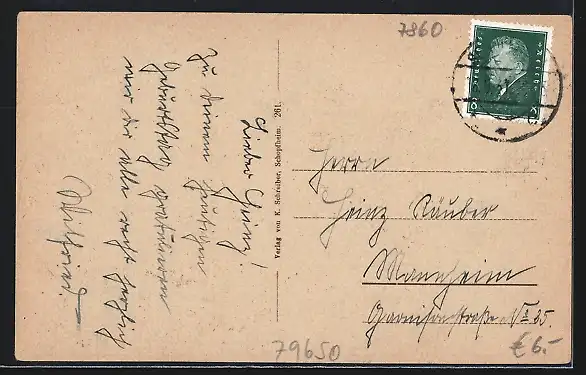 7860
Deutsches Reich
Lieber Heinz!
Zu Deinem heutigen
Geburtstag gratulieren
wir Dir alle recht herzlich
Verlag von K. Schreiber, Schopfheim. 261.
Herrn
Heinz Räuber
Mannheim
Garnisonstraße No 25.
79650
€ 6.-